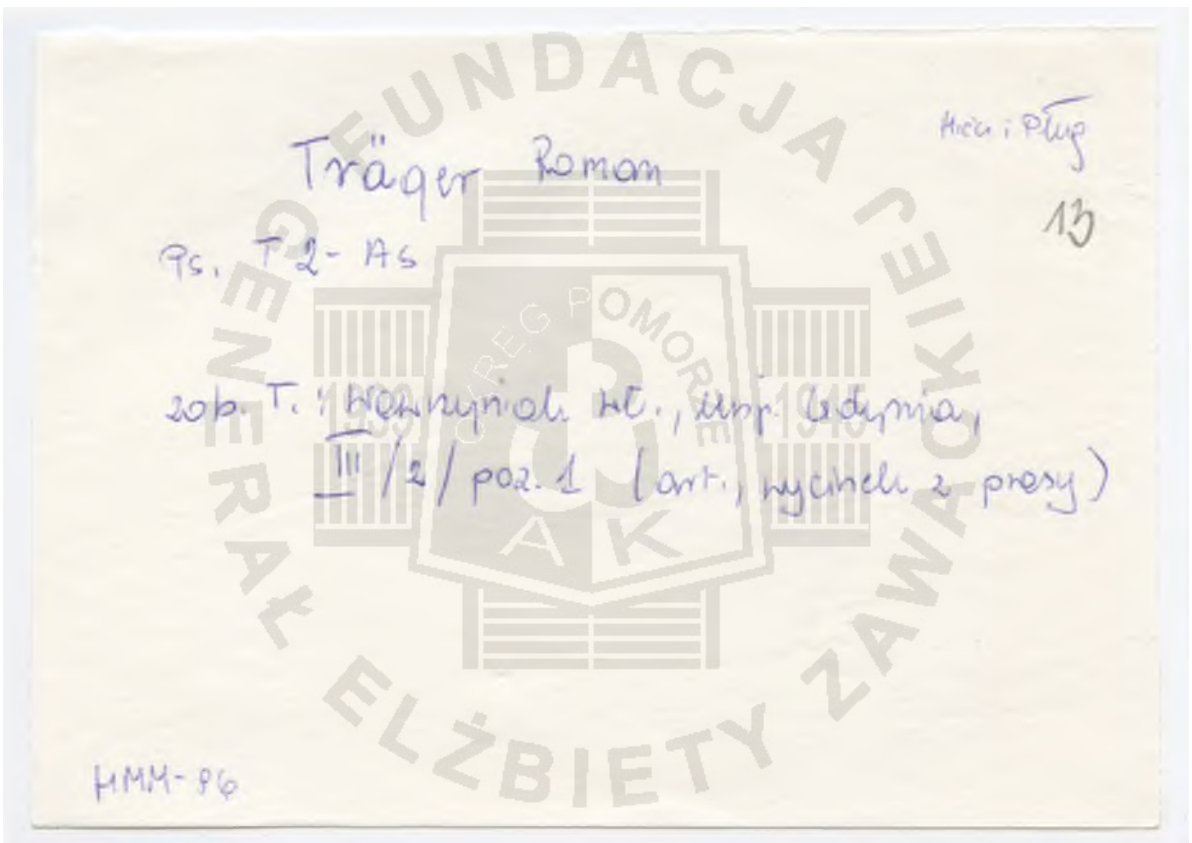 Miecz i Pług
Träger Roman
13
Ps. T2-As
zob. T.: Wawrzyniak Wł., Gdynia,
III/2/poz. 1 (art., wycinek z prasy)
HMM-96
FUNDACJA GENERAŁ ELŻBIETY ZAWACKIEJ
OKRĘG POMORZE
1939 1945
AK